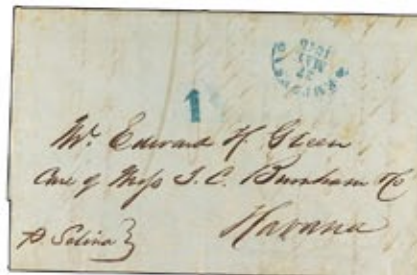 MAY
1
Mr. Edward H Green
Care of Mess J. C. Burnham & Co
Havana
p Selina